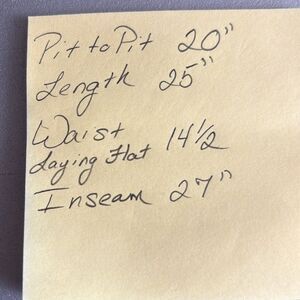 Pit to Pit 20"
Length 25"
Waist
Laying Flat 14 1/2
Inseam 27"